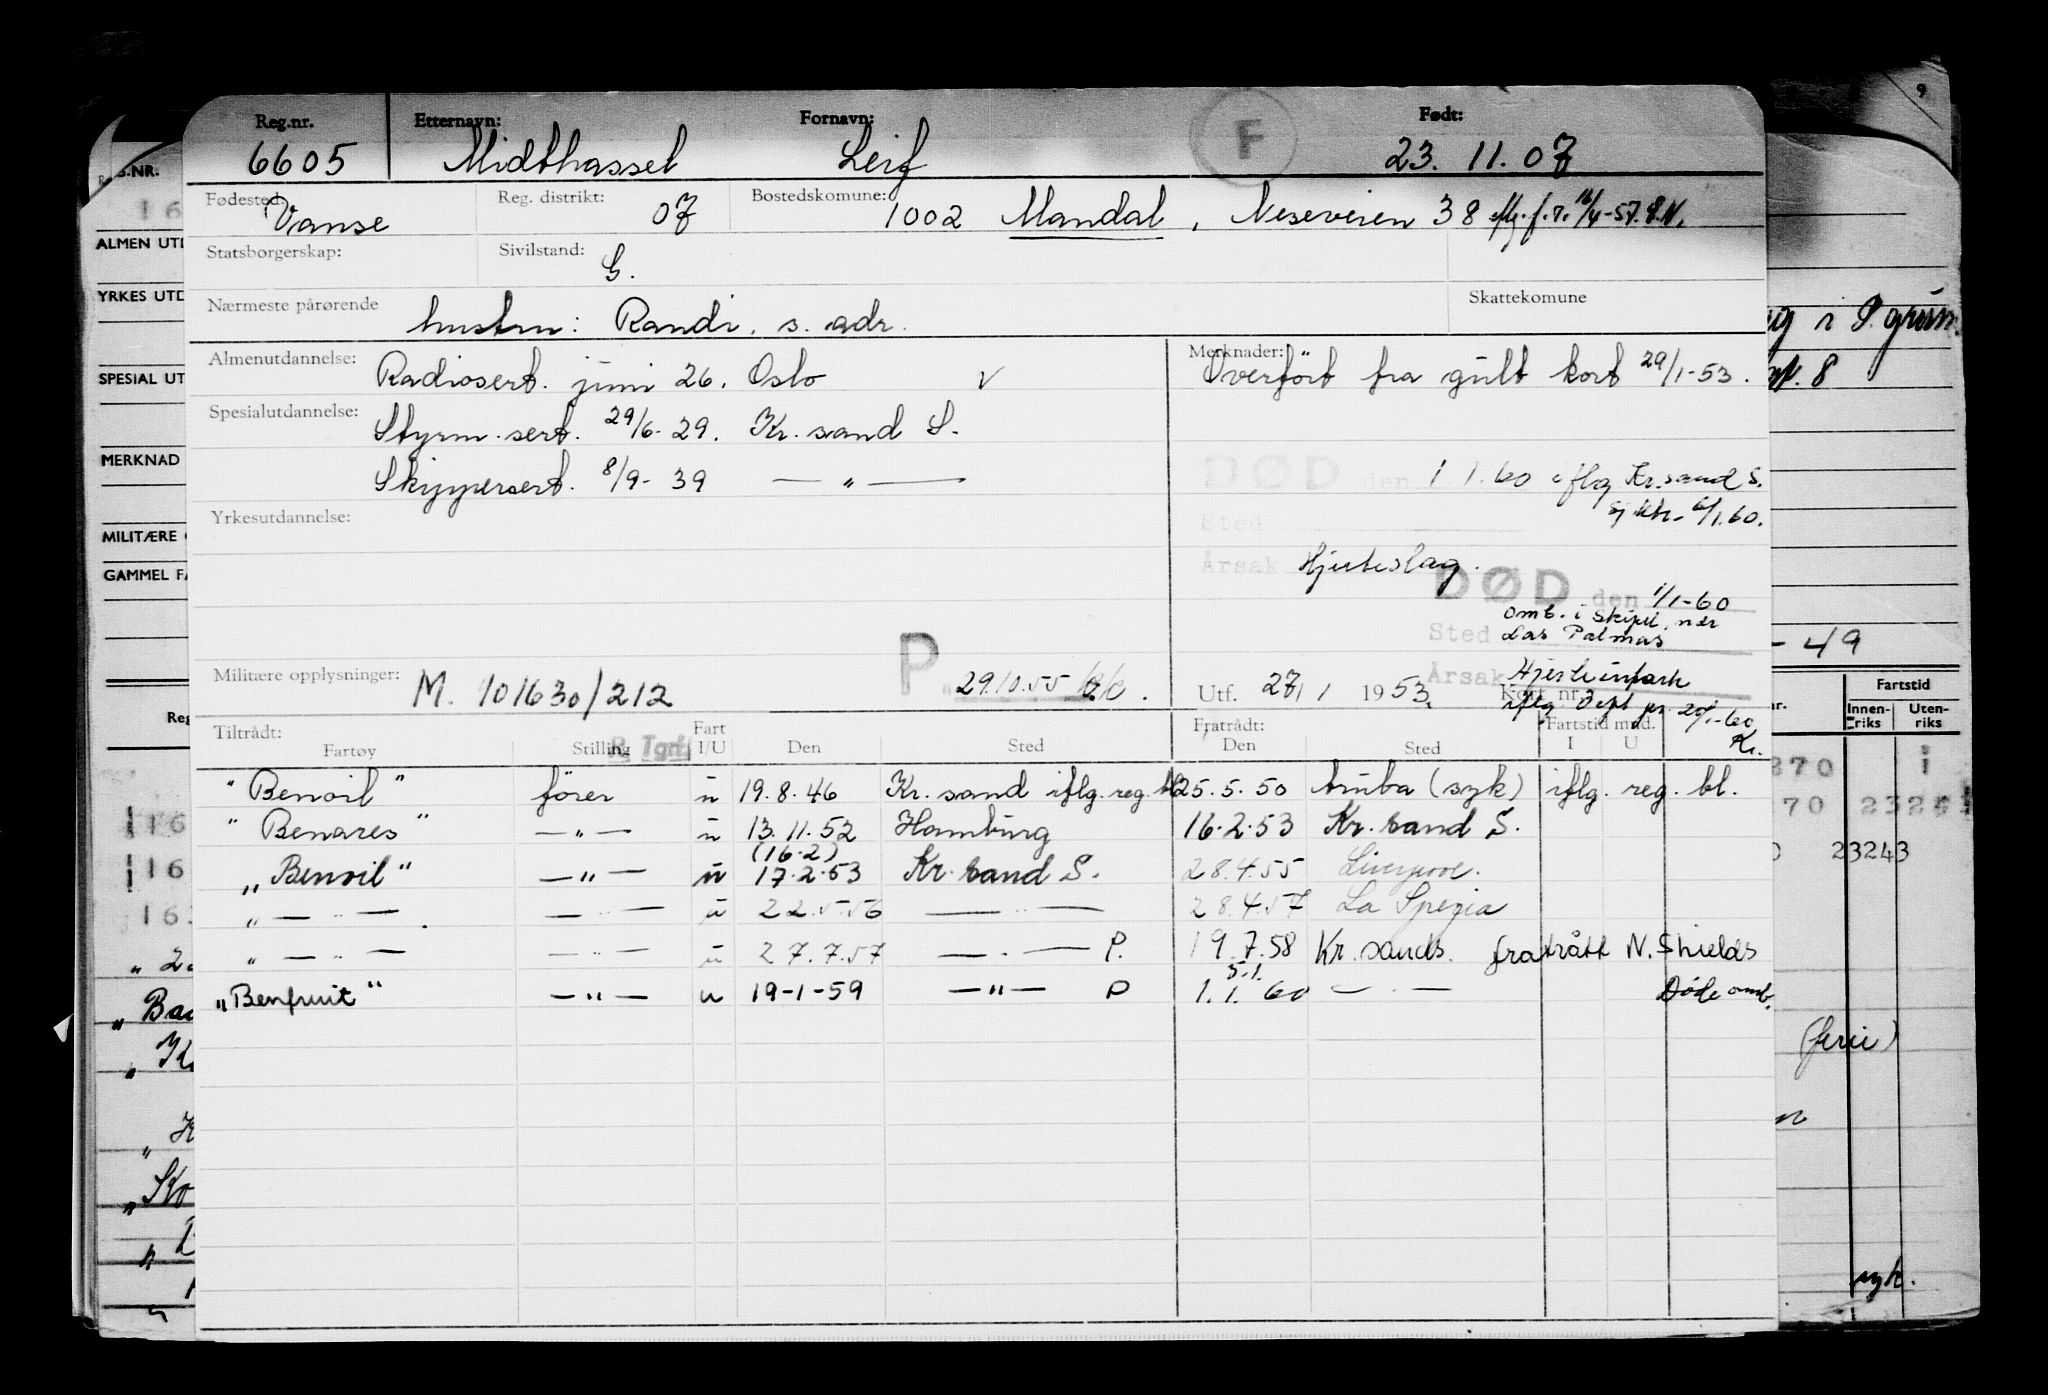 Reg.nr. Etternavn: Fornavn: F Født:
6605 Midthassel Leif 23. 11. 07
Fødested: Vanse Reg. distrikt: 07 Bostedskomune: 1002 Mandal, Neseveien 38 iflg. f.r. 16/4-57. S.N.
Statsborgerskap: Sivilstand: G.
Nærmeste pårørende hustru: Randi, s. adr. Skattekomune
Almenutdannelse: Radiosert. juni 26. Oslo v Merknader: Overført fra gult kort 29/1-53.
Spesialutdannelse: Styrm. sert. 29/6-29. Kr. sand S.
Skippersert. 8/9-39 — " —
DØD den 1 1.60 iflg Kr.sand S.
Sted sj.ktr. 6/1.60.
Yrkesutdannelse:
Årsak Hjerteslag.
DØD den 1/1-60
Sted omb. i skipet, nær
Las Palmas
Årsak Hjerteinfark
Militære opplysninger: M. 101630/212 P 29.10.55 Utf. 27/ 1 1953. Kort nr.
iflg Dept pr. 20/1-60
Kr.
Tiltrådt: Fart Fratrådt: Fartstid mnd.
Fartøy Stilling R. Tgrf. I/U Den Sted Den Sted I U
"Benoil" fører u 19.8.46 Kr. sand iflg. reg. bl. 25.5.50 Aruba (syk) iflg. reg. bl.
"Benares" — " — u 13.11.52 Hamburg 16.2.53 Kr. sand S.
(16.2)
"Benoil" — " — u 17.2.53 Kr. sand S. 28.4.55 Liverpool.
" — " — — " — u 22.5.56 — " — 28.4.57 La Spezia
" — " — — " — u 27.7.57 — " — P. 19.7.58 Kr. sands. fratrått N. Shields
5.1.
"Benfruit" — " — u 19-1-59 — " — P 1.1.60 — " — Døde omb.
S.NR.
16
ALMEN UTD
YRKES UTD
SPESIAL UT
MERKNAD
MILITÆRE
GAMMEL FA
Reg
9
8
- 49
Fartstid
nr. Innen-riks Uten-riks
270 1
70 2324
23243
(ferie)
syk.